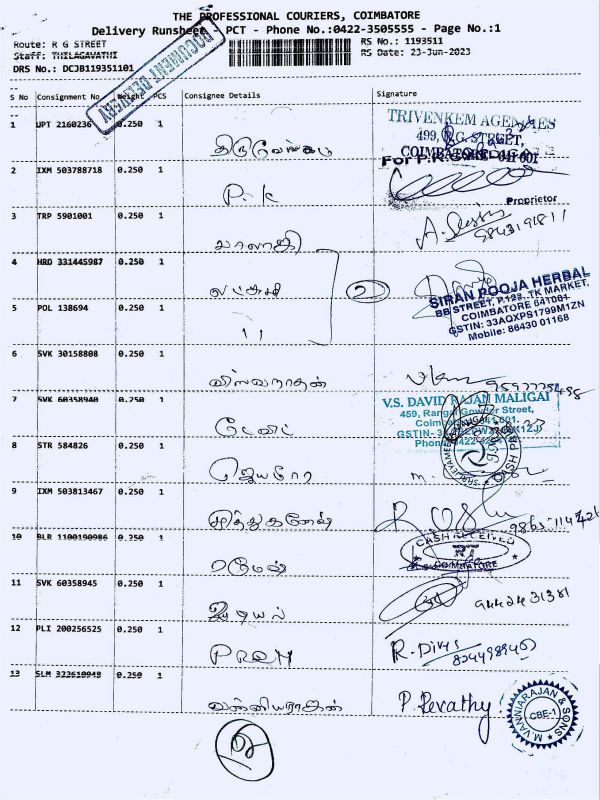 THE PROFESSIONAL COURIERS, COIMBATORE
Delivery Runsheet PCT - Phone No.:0422-3505555 - Page No.:1
Route: R G STREET
RS No.: 1193511
Staff: THILAGAVATHI
RS Date: 23-Jun-2023
DRS No.: DCJB119351101
DOCUMENT DELIVERY
S No Consignment No Weight PCS Consignee Details Signature
1 UPT 2160236 0.250 1
TRIVENKEM AGENCIES
499, R.G. STREET,
COIMBATORE - 641 001
2 IXM 503788718 0.250 1 P. K
Proprietor
3 TRP 5901001 0.250 1 பாலாஜி
9843191811
4 HRD 331445987 0.250 1 லட்சுமி 2
SIRAN POOJA HERBAL
BB STREET, P.123, TK MARKET,
COIMBATORE 641001
GSTIN: 33AQXPS1799M1ZN
Mobile: 86430 01168
5 POL 138694 0.250 1 11
6 SVK 30158808 0.250 1 விஸ்வநாதன்
7 SVK 60358940 0.250 1 டேவிட்
V.S. DAVID RAJAN MALIGAI
459, Rangai Gowder Street,
8 STR 584826 0.250 1
9 IXM 503813467 0.250 1 முத்துகணேஷ்
10 BLR 1100190986 0.250 1 ரமேஷ்
CASH RECEIVED
RT
COIMBATORE
11 SVK 60358945 0.250 1
9442431381
12 PLI 200256525 0.250 1 PREM R. Divs
13 SLM 322610948 0.250 1 வன்னியராஜன் P. Revathy
M. VANNIARAJAN & SONS
CBE-1